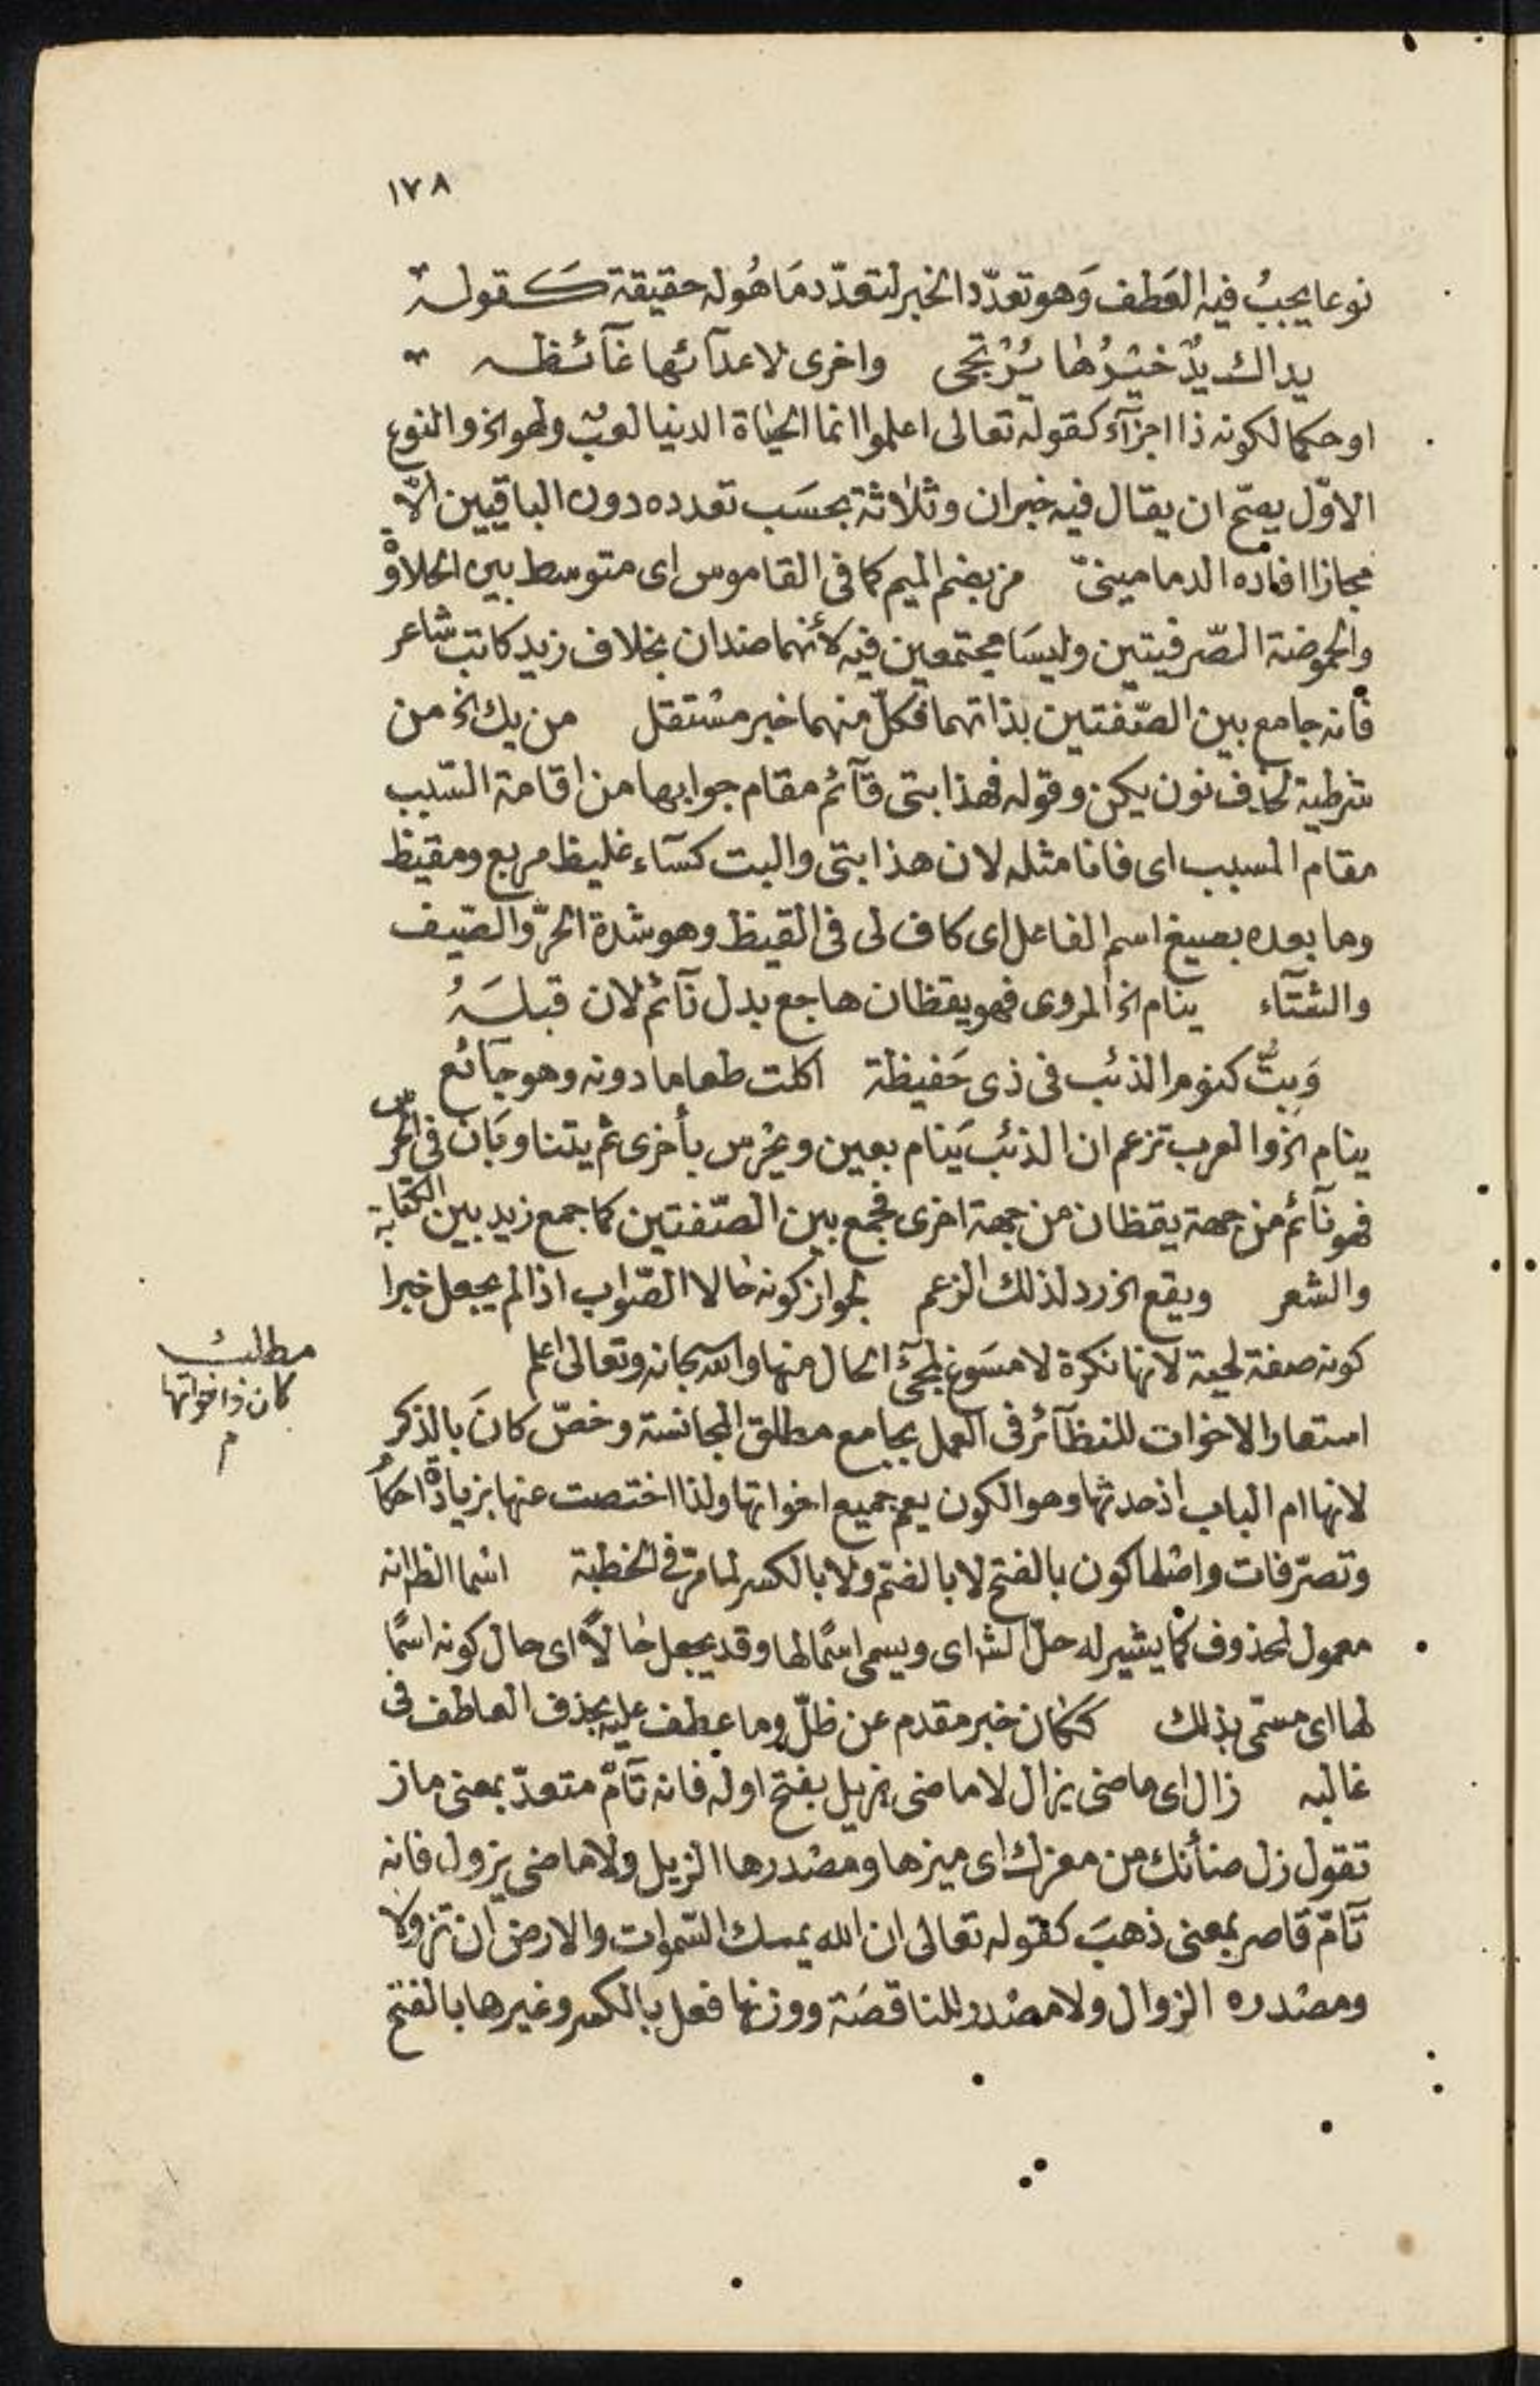 ١٧٨
نوعا يجبُ فيه العَطف وَهو تعدّد الخبر لتعدّد مَا هُوله حقيقة كَقوله
يداك يدٌ خيْرُها يُرْتجى واخرى لاعدآئها غآئظه
او حكما لكونه ذا اجزآء كقوله تعالى اعلموا انما الحيٰاة الدنيا لعبٌ ولهو الخ والنوع
الاوّل يصحّ ان يقال فيه خبران وثلٰاثة بحسَب تعدده دون الباقيين الّا
مجازا افاده الدمامينىّ مز بضم الميم كما فى القاموس اى متوسط بين الحلاوة
والحموضة الصّرفيتين وليسَا مجتمعين فيه لأنهما ضدان بخلاف زيد كاتب شاعر
فانه جامع بين الصّفتين بذاتهما فكلّ منهما خبر مشتقل من يك الخ من
شرطية لحذف نون يكن وقوله فهذا بتى قآئم مقام جوابها من اقامة السّبب
مقام المسبب اى فانا مثله لان هذا بتى والبت كسآء غليظ مربع ومقيظ
وما بعده بصيغ اسم الفاعل اى كاف لى فى القيظ وهو شدة الحرّ والصّيف
والشتآء ينام الخ المروى فهو يقظان هاجع بدل نآئم لان قبلَهُ
وَبِتُّ كنوم الذئب فى ذى حَفيظة اكلت طعاما دونه وهو جآئع
ينام الخ والعرب تزعم ان الذئبَ يَنام بعين ويحْرس بأخرى ثم يتناوبَان فى الحرس
فهو نآئم من جهة يقظان من جهة اخرى فجمع بين الصّفتين كما جمع زيد بين الكتابة
والشعر ويقع الخ رد لذلك الزعم لجواز كونه حٰالا الصّواب اذا لم يجعل خبرا
كونه صفة لحية لانها نكرة لا مسَوغ لمجئ الحال منها والله سبحانه وتعالى اعلم
مطلب
كان واخواتها
م
استعار الاخوات للنظآئر فى العمل بجامع مطلق المجانسة وخصّ كانَ بالذكر
لانها ام الباب اذ حدثها وهو الكون يعم جميع اخواتها ولذا اختصت عنها بزيادة احكام
وتصرّفات واصْلها كون بالفتح لا بالضم ولا بالكسر لما مرّ فى الخطبة اسْما الظ انه
معمول لمحذوف كما يشير له حلّ الش اى ويسمى اسْمًا لها وقد يجعل حٰالًا اى حال كونه اسْمًا
لها اى مسمّى بذلك ككان خبر مقدم عن ظلّ وما عطف عليه بحذف العاطف فى
غالبه زال اى ماضى يزال لا ماضى يزيل بفتح اوله فانه تآمّ متعدّ بمعنى ماز
تقول زل ضأنك من معزك اى ميزها ومصْدرها الزيل ولا ماضى يزول فانه
تآمّ قاصر بمعنى ذهبَ كقوله تعالى ان الله يمسك السّموات والارض ان تزولا
ومصْدره الزوال ولا مصْدر للناقصَة ووزنها فعل بالكسر وغيرها بالفتح